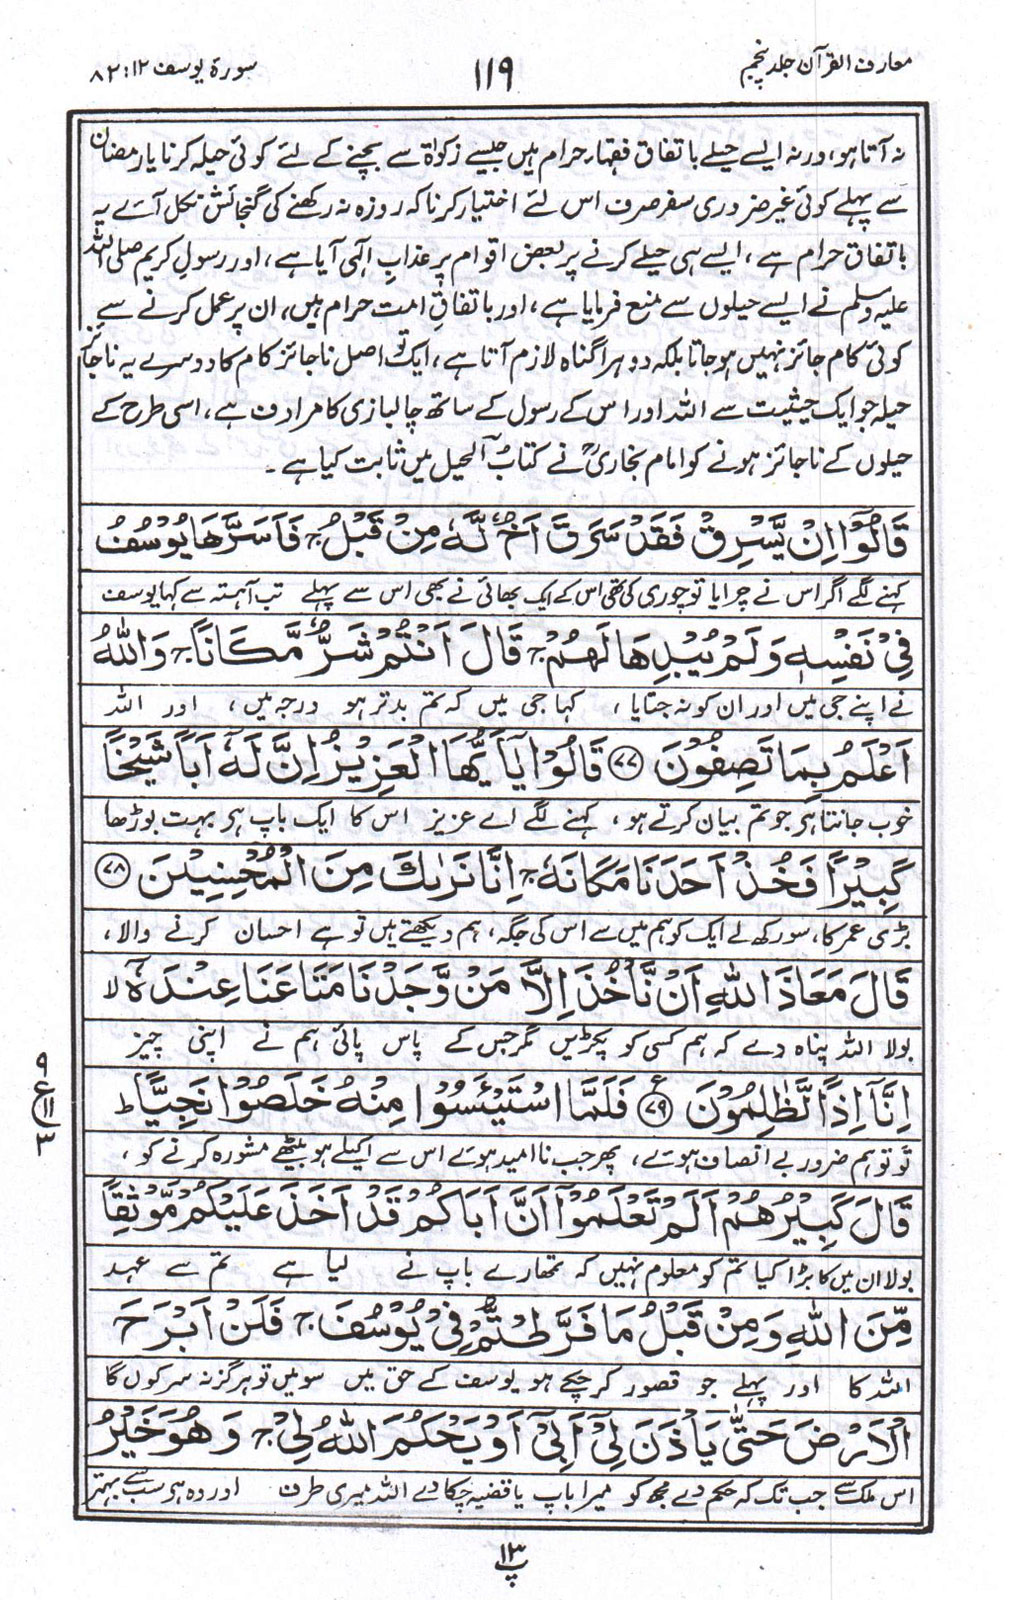 معارف القرآن جلد پنجم
۱۱۹
سورۃ یوسف ۱۲ : ۸۲
نہ آتا ہو، ورنہ ایسے حیلے باتفاق فقہاء حرام ہیں جیسے زکوٰۃ سے بچنے کے لئے کوئی حیلہ کرنا یا رمضان
سے پہلے کوئی غیر ضروری سفر صرف اس لئے اختیار کرنا کہ روزہ نہ رکھنے کی گنجائش نکل آئے یہ
باتفاق حرام ہے، ایسے ہی حیلے کرنے پر بعض اقوام پر عذابِ الٰہی آیا ہے، اور رسولِ کریم صلی اللہ
علیہ وسلم نے ایسے حیلوں سے منع فرمایا ہے، اور باتفاقِ امت حرام ہیں، ان پر عمل کرنے سے
کوئی کام جائز نہیں ہو جاتا بلکہ دوہرا گناہ لازم آتا ہے، ایک تو اصل ناجائز کام کا دوسرے یہ ناجائز
حیلہ جو ایک حیثیت سے اللہ اور اس کے رسول کے ساتھ چالبازی کا مرادف ہے، اسی طرح کے
حیلوں کے ناجائز ہونے کو امام بخاریؒ نے کتابُ الحیل میں ثابت کیا ہے۔
قَالُوْٓا اِنْ يَّسْرِقْ فَقَدْ سَرَقَ اَخٌ لَّهٗ مِنْ قَبْلُ ۚ فَاَسَرَّهَا يُوْسُفُ
کہنے لگے اگر اس نے چرایا تو چوری کی تھی اس کے ایک بھائی نے بھی اس سے پہلے تب آہستہ سے کہا یوسف
فِيْ نَفْسِهٖ وَلَمْ يُبْدِهَا لَهُمْ ۚ قَالَ اَنْتُمْ شَرٌّ مَّكَانًا ۚ وَاللّٰهُ
نے اپنے جی میں اور ان کو نہ جتایا، کہا جی میں کہ تم بدتر ہو درجہ میں، اور اللہ
اَعْلَمُ بِمَا تَصِفُوْنَ ﴿۷۷﴾ قَالُوْا يٰٓاَيُّهَا الْعَزِيْزُ اِنَّ لَهٗٓ اَبًا شَيْخًا
خوب جانتا ہی جو تم بیان کرتے ہو، کہنے لگے اے عزیز اس کا ایک باپ ہی بہت بوڑھا
كَبِيْرًا فَخُذْ اَحَدَنَا مَكَانَهٗ ۚ اِنَّا نَرٰىكَ مِنَ الْمُحْسِنِيْنَ ﴿۷۸﴾
بڑی عمر کا، سو رکھ لے ایک کو ہم میں سے اس کی جگہ، ہم دیکھتے ہیں تو ہے احسان کرنے والا،
قَالَ مَعَاذَ اللّٰهِ اَنْ نَّاْخُذَ اِلَّا مَنْ وَّجَدْنَا مَتَاعَنَا عِنْدَهٗٓ ۙ
بولا اللہ پناہ دے کہ ہم کسی کو پکڑیں مگر جس کے پاس پائی ہم نے اپنی چیز
اِنَّآ اِذًا لَّظٰلِمُوْنَ ﴿۷۹﴾ ع فَلَمَّا اسْتَيْـَٔسُوْا مِنْهُ خَلَصُوْا نَجِيًّا ؕ
۹
ع ۱۱
۳
تو تو ہم ضرور بے انصاف ہوئے، پھر جب ناامید ہوئے اس سے اکیلے ہو بیٹھے مشورہ کرنے کو،
قَالَ كَبِيْرُهُمْ اَلَمْ تَعْلَمُوْٓا اَنَّ اَبَاكُمْ قَدْ اَخَذَ عَلَيْكُمْ مَّوْثِقًا
بولا ان میں کا بڑا کیا تم کو معلوم نہیں کہ تمھارے باپ نے لیا ہے تم سے عہد
مِّنَ اللّٰهِ وَمِنْ قَبْلُ مَا فَرَّطْتُّمْ فِيْ يُوْسُفَ ۚ فَلَنْ اَبْرَحَ
اللہ کا اور پہلے جو قصور کر چکے ہو یوسف کے حق میں سو میں تو ہرگز نہ سرکوں گا
الْاَرْضَ حَتّٰى يَاْذَنَ لِيْٓ اَبِيْٓ اَوْ يَحْكُمَ اللّٰهُ لِيْ ۚ وَهُوَ خَيْرُ
اس ملک سے جب تک کہ حکم دے مجھ کو میرا باپ یا قضیہ چکا دے اللہ میری طرف اور وہ ہی سب سے بہتر
پ ۱۳